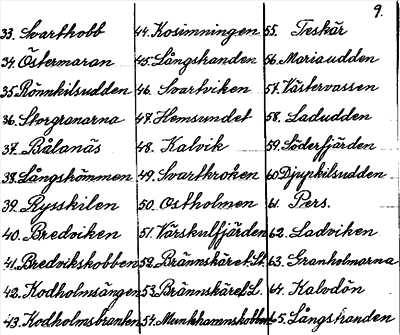 9.
33. Svarthobb
34. Östermaran
35. Rönnkilsudden
36. Storgranarna
37. Bålanäs
38. Långströmmen
39. Rysskilen
40. Bredviken
41. Bredvikskobben
42. Kodholmsängen
43. Kodholmsbranken
44. Kosimningen
45. Långstranden
46. Svartviken
47. Hemsundet
48. Kalvik
49. Svartkroken
50. Ostholmen
51. Värskulfjärden
52. Brännskäret. St.
53. Brännskäret L.
54. Munkhamnskobben
55. Teskär
56. Mariaudden
57. Västervassen
58. Ladudden
59. Söderfjärden
60. Djupkilsudden
61. Pers.
62. Ladviken
63. Granholmarna
64. Kalvdön
5. Långstranden